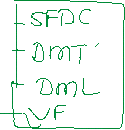 SFDC
DMT
DML
VF